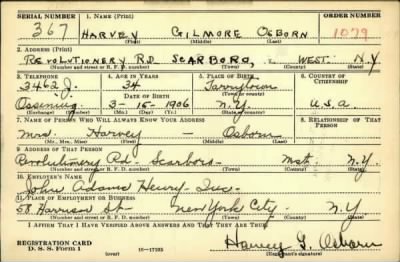 SERIAL NUMBER 1. NAME (Print) ORDER NUMBER
367 HARVEY GILMORE OSBORN 1079
(First) (Middle) (Last)
2. ADDRESS (Print)
REVOLUTIONERY RD SCARBORO, WEST. N.Y
(Number and street or R. F. D. number) (Town) (County) (State)
3. TELEPHONE 4. AGE IN YEARS 5. PLACE OF BIRTH 6. COUNTRY OF CITIZENSHIP
2462 J. 34 Tarrytown
Ossining 3-15-1906 N.Y. U.S.A.
(Exchange) (Number) (Mo.) (Day) (Yr.) (State or country)
7. NAME OF PERSON WHO WILL ALWAYS KNOW YOUR ADDRESS 8. RELATIONSHIP OF THAT PERSON
Mrs. Harvey - Osborn
(Mr., Mrs., Miss) (First) (Middle) (Last)
9. ADDRESS OF THAT PERSON
Revolutionery Rd - Scarboro - N.Y.
(Number and street or R. F. D. number) (Town) (County) (State)
10. EMPLOYER'S NAME
John Adams Henry - Inc.
11. PLACE OF EMPLOYMENT OR BUSINESS
58 Harrison St - New York City - N.Y.
(Number and street or R. F. D. number) (Town) (County) (State)
I AFFIRM THAT I HAVE VERIFIED ABOVE ANSWERS AND THAT THEY ARE TRUE.
REGISTRATION CARD
D. S. S. Form 1 (over) 16-17105 Harvey G. Osborn
(Registrant's signature)